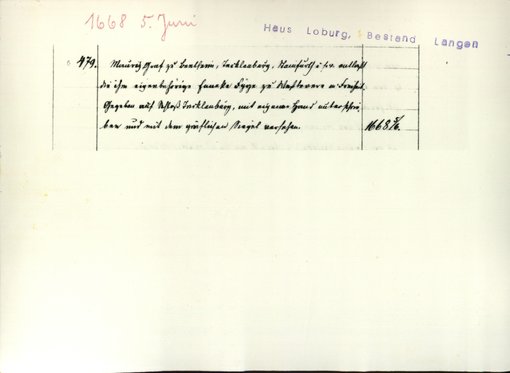 1668 5. Juni
Haus Loburg, Bestand Langen
479. Mauritz Graf zu Bentheim, Tecklenburg, Steinfurth u.s.w. entlaßt
die ihm eigenbehörige Enneke zu Westerere in Freiheit.
Gegeben auf Schloß Tecklenburg, mit eigener Hand unterschrie
ben und mit dem gräflichen Siegel versehen. 1668 5/6.